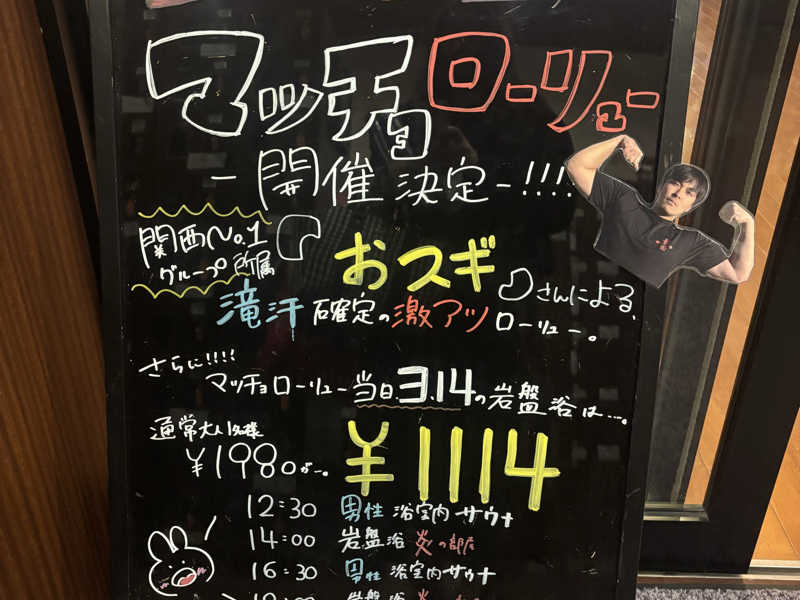 マッチョローリュー
-開催決定-!!!!
関西No.1
グループ所属
おスギ
さんによる、
滝汗確定の激アツローリュー。
さらに!!!!
マッチョローリュー当日.3.14の岩盤浴は…。
通常大人1名様
¥1980が…。
¥1114
12:30 男性 浴室内サウナ
14:00 岩盤浴 炎の部屋
16:30 男性 浴室内サウナ